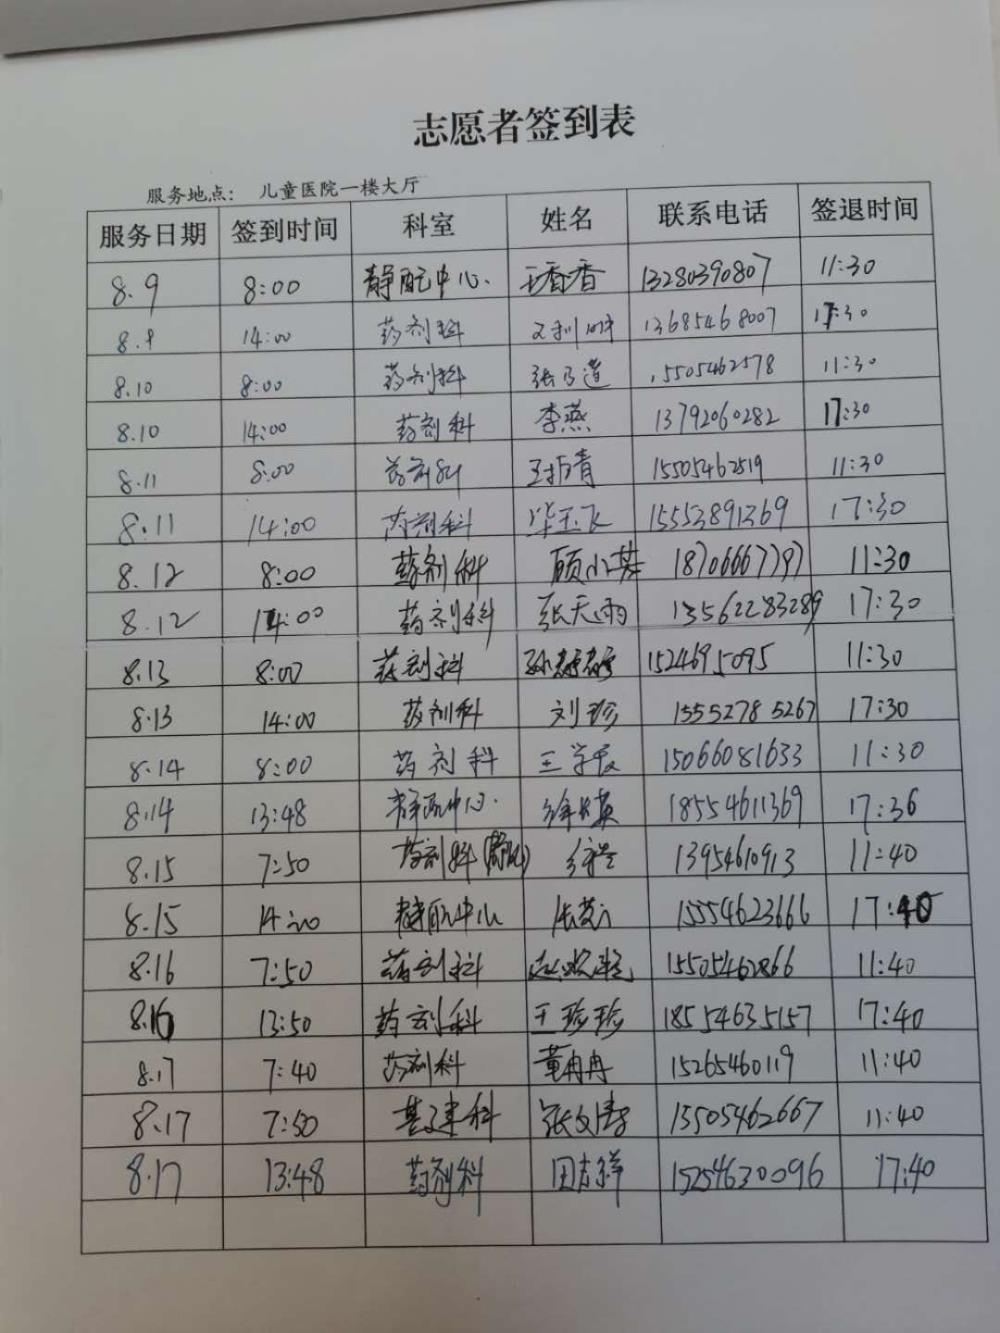 志愿者签到表
服务地点： 儿童医院一楼大厅
服务日期 签到时间 科室 姓名 联系电话 签退时间
8.9 8:00 静配中心. 王香香 13280390807 11:30
8.9 14:00 药剂科 13685468007 17:30
8.10 8:00 药剂科 15505462578 11:30
8.10 14:00 药剂科 李燕 13792060282 17:30
8.11 8:00 药剂科 15505462519 11:30
8.11 14:00 药剂科 毕玉飞 15553891369 17:30
8.12 8:00 药剂科 顾小英 18706667797 11:30
8.12 14:00 药剂科 张天雨 13562283289 17:30
8.13 8:00 药剂科 1524695095 11:30
8.13 14:00 药剂科 刘珍 15552785267 17:30
8.14 8:00 药剂科 15066081633 11:30
8.14 13:48 静配中心. 18554611369 17:36
8.15 7:50 药剂科 13954610913 11:40
8.15 14:20 静配中心 15554623666 17:40
8.16 7:50 药剂科 15505462866 11:40
8.16 13:50 药剂科 王珍珍 18554635157 17:40
8.17 7:40 药剂科 董冉冉 15265460119 11:40
8.17 7:50 基建科 张文涛 15505462667 11:40
8.17 13:48 药剂科 田志祥 15254630096 17:40